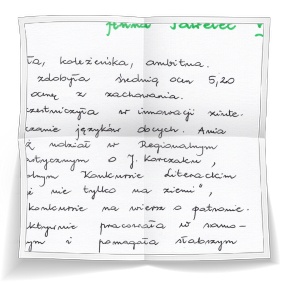 Anna Jawelec
ła, koleżeńska, ambitna.
zdobyła średnią ocen 5,20
ocenę z zachowania.
zestniczyła w innowacji
czanie języków obcych. Ania
ż udział w Regionalnym
artystycznym o J. Korczaku,
olnym Konkursie Literackim
ż nie tylko na ziemi",
konkursie na wiersz o patronie.
aktywnie pracowała w samo-
ym i pomagała słabszym